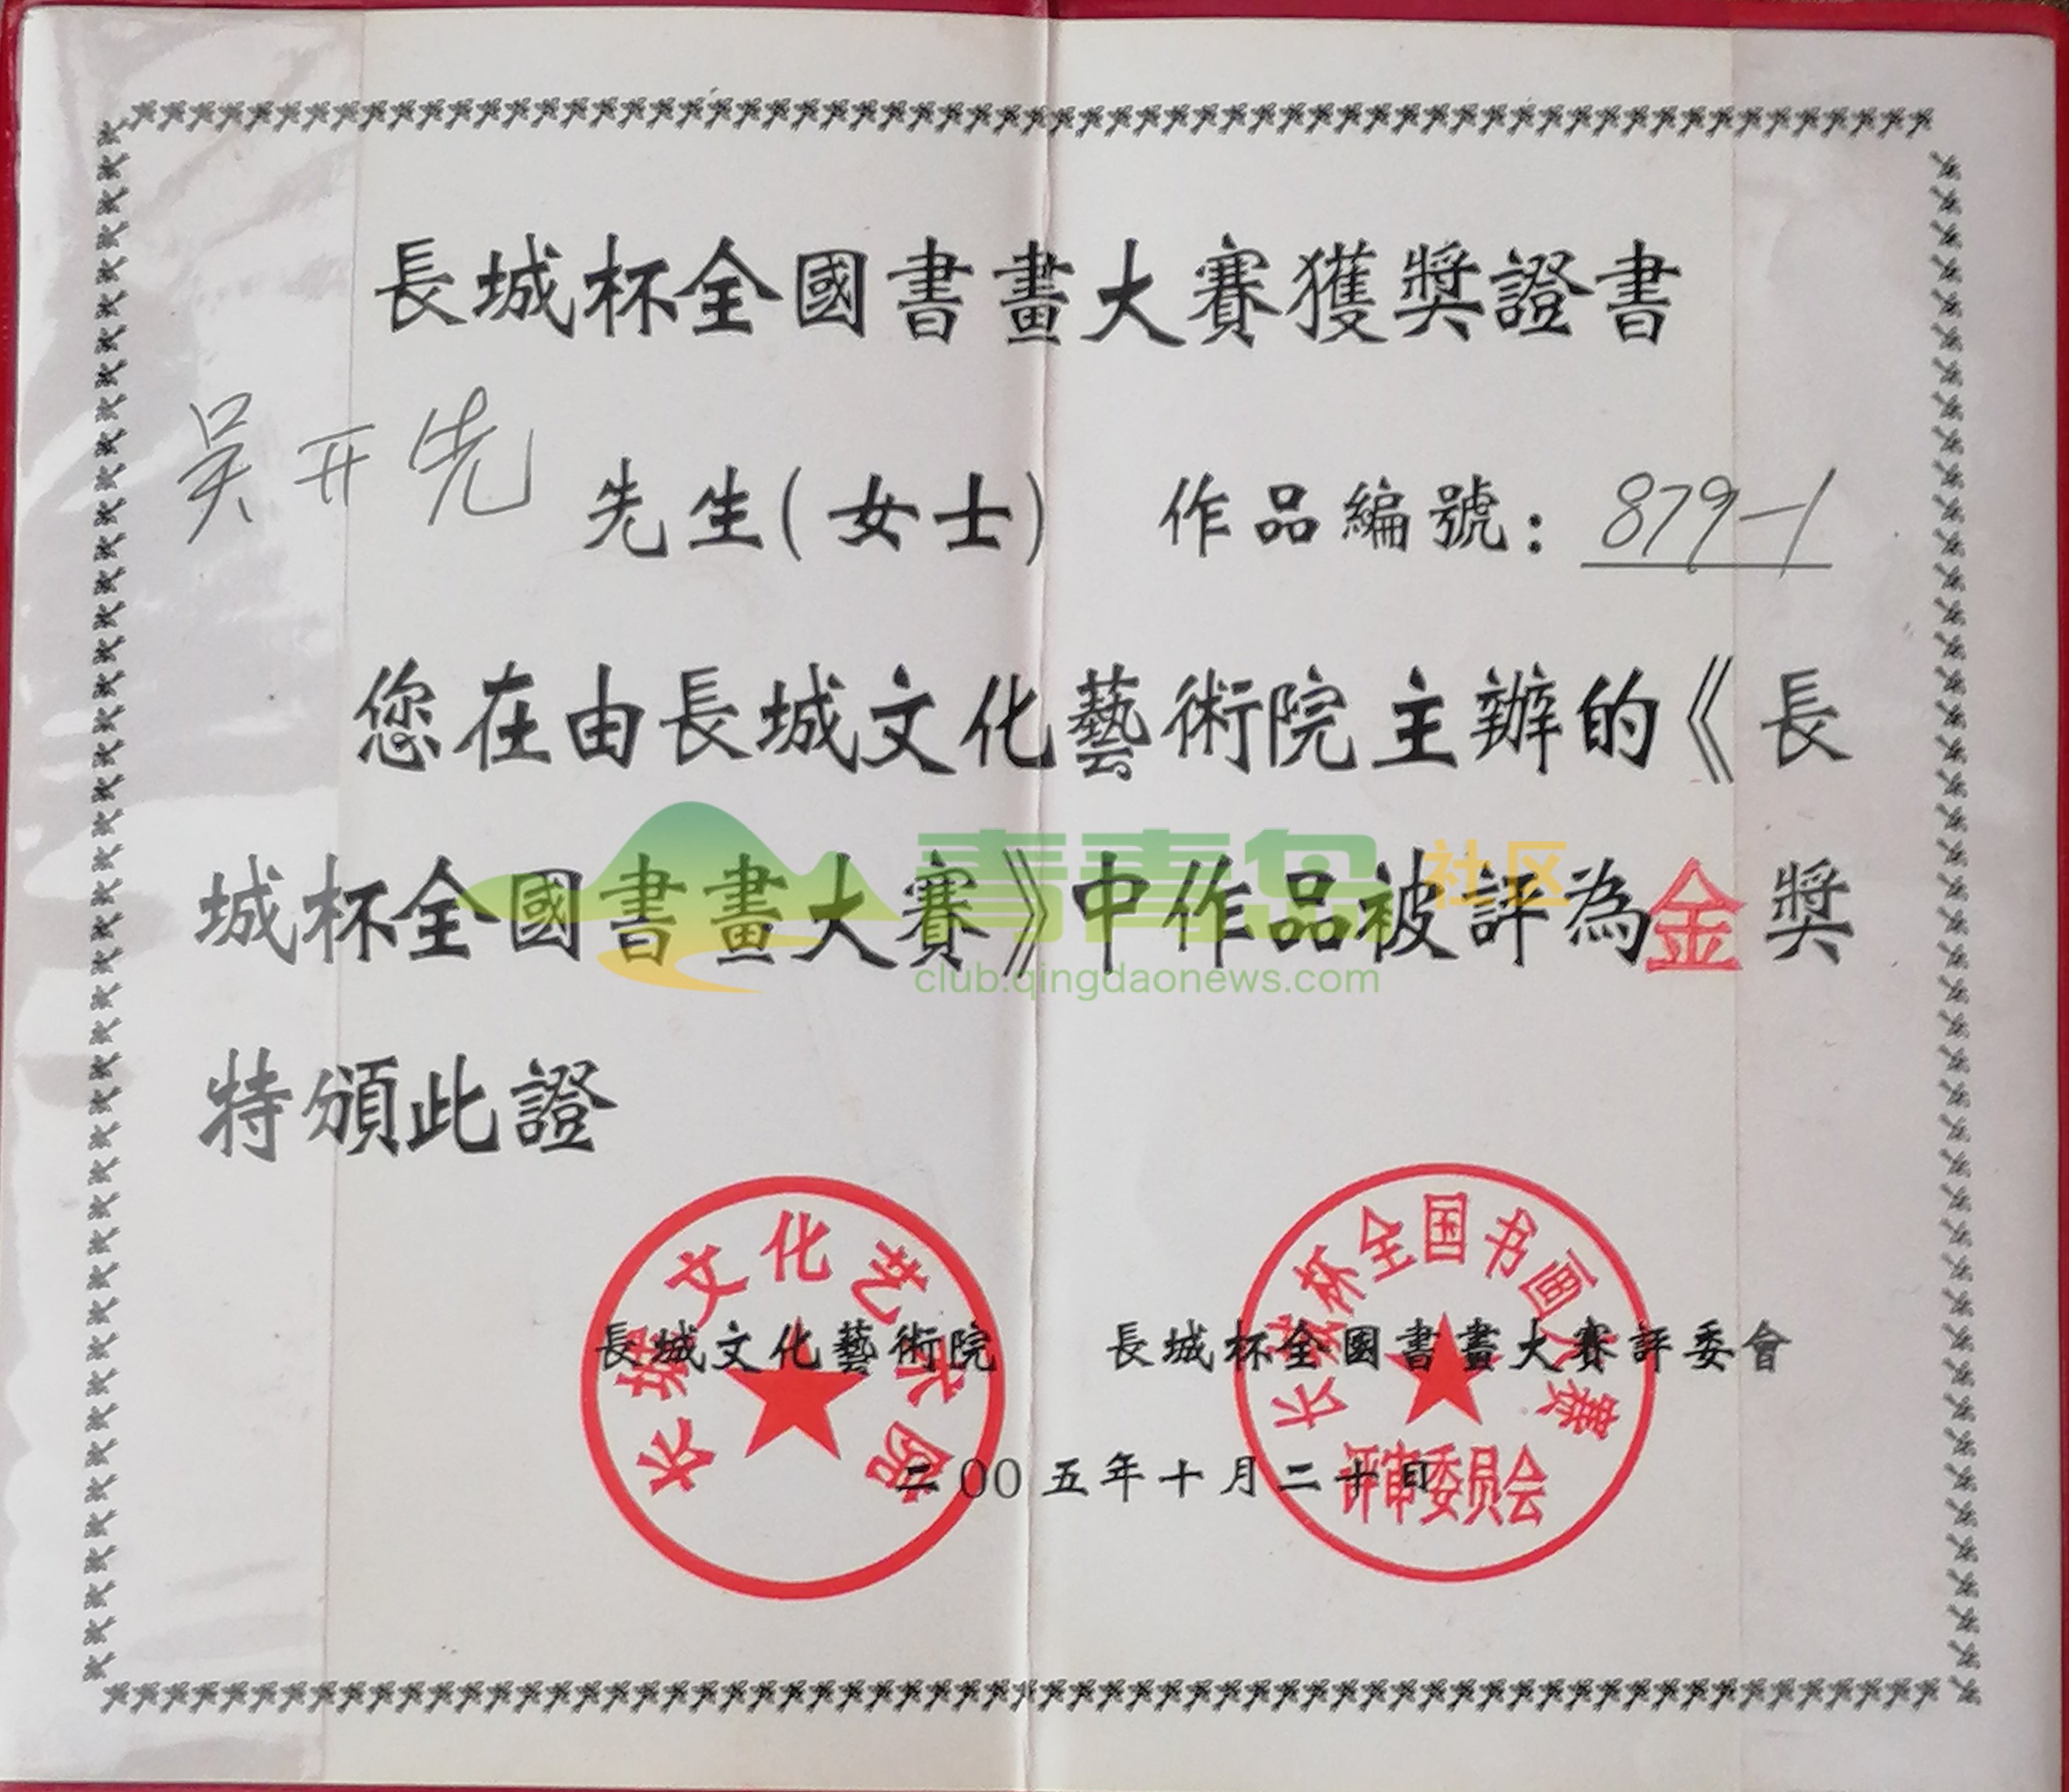 長城杯全國書畫大賽獲獎證書
吴开先 先生(女士) 作品編號: 879-1
您在由長城文化藝術院主辦的《長
城杯全國書畫大賽》中作品被評為金獎
青青岛社区
club.qingdaonews.com
特頒此證
长城文化艺术院
长城杯全国书画大赛
評审委员会
長城文化藝術院
長城杯全國書畫大賽評委會
二00五年十月二十日